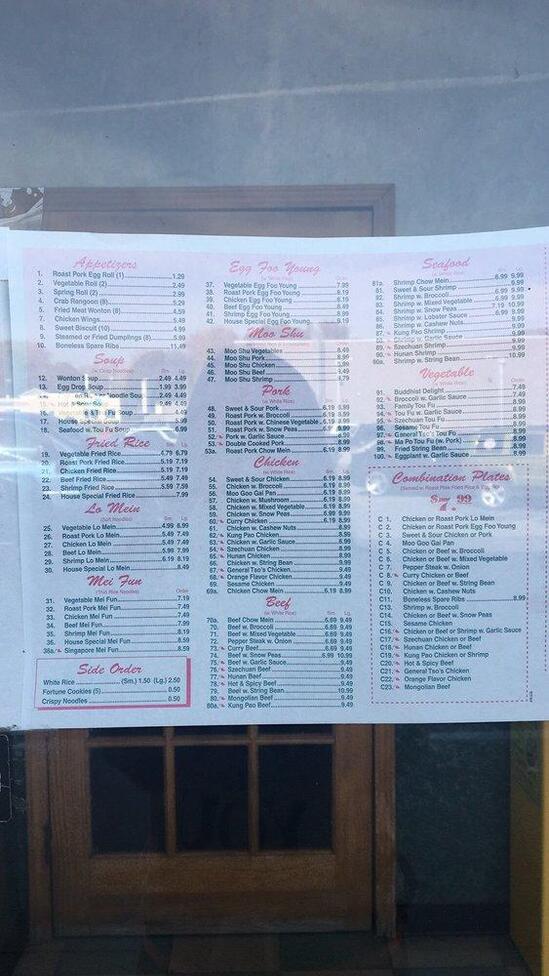 Appetizers
1. Roast Pork Egg Roll (1) 1.29
2. Vegetable Roll (2) 2.49
3. Spring Roll (2) 2.99
4. Crab Rangoon (8) 5.29
5. Fried Meat Wonton (8) 4.59
6. Chicken Wings 5.49
8. Sweet Biscuit (10) 4.99
9. Steamed or Fried Dumplings (8) 5.99
10. Boneless Spare Ribs 11.49
Soup
12. Wonton 2.49 4.49
13. Egg Drop Soup 1.99 3.99
Soup 2.49 4.49
17. House Special Soup 5.99
18. Seafood w. Tou Fu Soup 6.99
Fried Rice
Sm. Lg.
19. Vegetable Fried Rice 4.79 6.79
20. Roast Pork Fried Rice 5.19 7.19
21. Chicken Fried Rice 5.19 7.19
22. Beef Fried Rice 5.49 7.49
23. Shrimp Fried Rice 5.59 7.59
24. House Special Fried Rice 7.99
Lo Mein
(Soft Noodles)
25. Vegetable Lo Mein 4.99 6.99
26. Roast Pork Lo Mein 5.49 7.49
27. Chicken Lo Mein 5.49 7.49
28. Beef Lo Mein 5.99 7.99
29. Shrimp Lo Mein 6.19 8.19
30. House Special Lo Mein 8.49
Mei Fun
(Thin Rice Noodle)
31. Vegetable Mei Fun 7.19
32. Roast Pork Mei Fun 7.49
33. Chicken Mei Fun 7.49
34. Beef Mei Fun 7.99
35. Shrimp Mei Fun 8.19
36. House Special Mei Fun 8.59
36a. Singapore Mei Fun 8.59
Side Order
White Rice (Sm.) 1.50 (Lg.) 2.50
Fortune Cookies (5) 0.50
Crispy Noodles 0.50
Egg Foo Young
(w. White Rice)
37. Vegetable Egg Foo Young 7.99
38. Roast Pork Egg Foo Young 8.19
39. Chicken Egg Foo Young 8.19
40. Beef Egg Foo Young 8.49
41. Shrimp Egg Foo Young 8.99
42. House Special Egg Foo Young 9.19
Moo Shu
43. Moo Shu Vegetables 8.49
44. Moo Shu Pork 8.99
45. Moo Shu Chicken 8.99
46. Moo Shu Beef 9.49
47. Moo Shu Shrimp 9.79
Pork
(w. White Rice)
48. Sweet & Sour Pork 6.19 8.99
49. Roast Pork w. Broccoli 6.19 8.99
50. Roast Pork w. Chinese Vegetable 6.19 8.99
51. Roast Pork w. Snow Peas 6.19 8.99
52. Pork w. Garlic Sauce 8.99
53. Double Cooked Pork 8.99
53a. Roast Pork Chow Mein 6.19 8.99
Chicken
(w. White Rice)
54. Sweet & Sour Chicken 6.19 8.99
55. Chicken w. Broccoli 6.19 8.99
56. Moo Goo Gai Pan 6.19 8.99
57. Chicken w. Mushroom 6.19 8.99
58. Chicken w. Mixed Vegetable 6.19 8.99
59. Chicken w. Snow Peas 6.19 8.99
60. Curry Chicken 6.19 8.99
61. Chicken w. Cashew Nuts 8.99
62. Kung Pao Chicken 8.99
63. Chicken w. Garlic Sauce 8.99
64. Szechuan Chicken 8.99
65. Hunan Chicken 8.99
66. Chicken w. String Bean 9.99
67. General Tso's Chicken 9.49
68. Orange Flavor Chicken 9.49
69. Sesame Chicken 9.49
69a. Chicken Chow Mein 6.19 8.99
Beef
(w. White Rice)
70a. Beef Chow Mein 6.69 9.49
70. Beef w. Broccoli 6.69 9.49
71. Beef w. Mixed Vegetable 6.69 9.49
72. Pepper Steak w. Onion 6.69 9.49
73. Curry Beef 6.69 9.49
74. Beef w. Snow Peas 6.99 10.99
75. Beef w. Garlic Sauce 9.49
76. Szechuan Beef 9.49
77. Hunan Beef 9.49
78. Hot & Spicy Beef 9.49
79. Beef w. String Bean 10.99
80. Mongolian Beef 9.49
80a. Kung Pao Beef 9.49
Seafood
81a. Shrimp Chow Mein 6.99 9.99
81. Sweet & Sour Shrimp 9.99
82. Shrimp w. Broccoli 6.99 9.99
83. Shrimp w. Mixed Vegetable 6.99 9.99
84. Shrimp w. Snow Peas 7.19 10.99
85. Shrimp w. Lobster Sauce 6.99 9.99
86. Shrimp w. Cashew Nuts
87. Kung Pao Shrimp
88. Shrimp w. Garlic Sauce
89. Szechuan Shrimp 9.99
90. Hunan Shrimp
90a. Shrimp w. String Bean 10.99
Vegetable
91. Buddhist Delight 7.49
92. Broccoli w. Garlic Sauce 7.49
93. Family Tou Fu
94. Tou Fu w. Garlic Sauce
95. Szechuan Tou Fu
96. Sesame Tou Fu
97. General Tso's Tou Fu
98. Ma Po Tou Fu (w. Pork) 8.99
99. Fried String Bean 8.99
Eggplant w. Garlic Sauce 8.99
Combination Plates
(Served w. Roast Pork Fried Rice & Egg Roll)
$7.99
C 1. Chicken or Roast Pork Lo Mein
C 2. Chicken or Roast Pork Egg Foo Young
C 3. Sweet & Sour Chicken or Pork
C 4. Moo Goo Gai Pan
C 5. Chicken or Beef w. Broccoli
C 6. Chicken or Beef w. Mixed Vegetable
C 7. Pepper Steak w. Onion
C 8. Curry Chicken or Beef
C 9. Chicken or Beef w. String Bean
C10. Chicken w. Cashew Nuts
C11. Boneless Spare Ribs 8.99
C13. Shrimp w. Broccoli
C14. Chicken or Beef w. Snow Peas
C15. Sesame Chicken
C16. Chicken or Beef or Shrimp w. Garlic Sauce
C17. Szechuan Chicken or Beef
C18. Hunan Chicken or Beef
C19. Kung Pao Chicken or Shrimp
C20. Hot & Spicy Beef
C21. General Tso's Chicken
C22. Orange Flavor Chicken
C23. Mongolian Beef